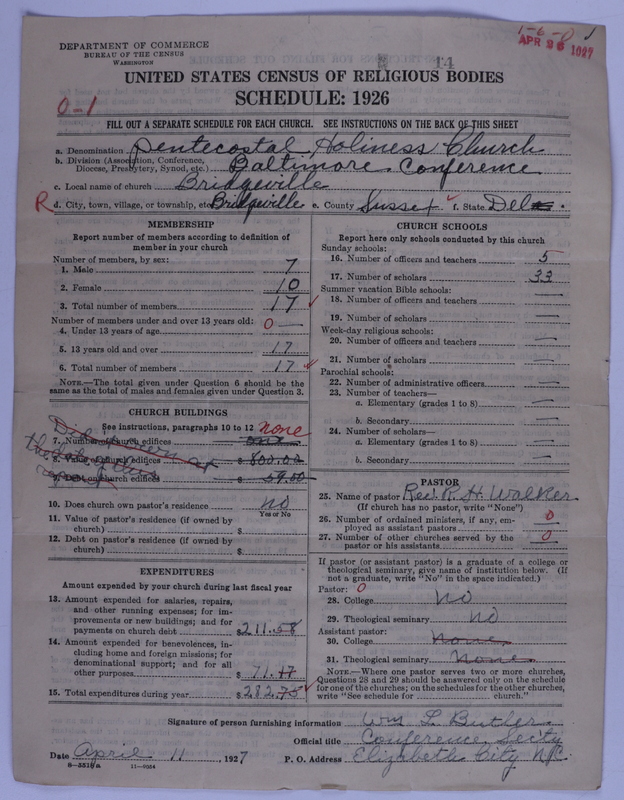 1-6-8
APR 26 1927
14
DEPARTMENT OF COMMERCE
BUREAU OF THE CENSUS
WASHINGTON
UNITED STATES CENSUS OF RELIGIOUS BODIES
SCHEDULE: 1926
0-1
FILL OUT A SEPARATE SCHEDULE FOR EACH CHURCH. SEE INSTRUCTIONS ON THE BACK OF THIS SHEET
a. Denomination Pentecostal Holiness Church
b. Division (Association, Conference, Diocese, Presbytery, Synod, etc.) Baltimore Conference
c. Local name of church Bridgeville
R d. City, town, village, or township, etc. Bridgeville e. County Sussex f. State Del.
MEMBERSHIP
Report number of members according to definition of
member in your church
Number of members, by sex:
1. Male 7
2. Female 10
3. Total number of members 17
Number of members under and over 13 years old:
4. Under 13 years of age 0 —
5. 13 years old and over 17
6. Total number of members 17
NOTE.—The total given under Question 6 should be the
same as the total of males and females given under Question 3.
CHURCH BUILDINGS
See instructions, paragraphs 10 to 12 none
7. Number of church edifices one
8. Value of church edifices $ 800.00
9. Debt on church edifices $ 59.00
10. Does church own pastor's residence no
Yes or No
11. Value of pastor's residence (if owned by
church) $
12. Debt on pastor's residence (if owned by
church) $
EXPENDITURES
Amount expended by your church during last fiscal year
13. Amount expended for salaries, repairs,
and other running expenses; for im-
provements or new buildings; and for
payments on church debt $211.58
14. Amount expended for benevolences, in-
cluding home and foreign missions; for
denominational support; and for all
other purposes $ 71.17
15. Total expenditures during year $282.75
CHURCH SCHOOLS
Report here only schools conducted by this church
Sunday schools:
16. Number of officers and teachers 5
17. Number of scholars 33
Summer vacation Bible schools:
18. Number of officers and teachers —
19. Number of scholars —
Week-day religious schools:
20. Number of officers and teachers —
21. Number of scholars —
Parochial schools:
22. Number of administrative officers —
23. Number of teachers—
a. Elementary (grades 1 to 8) —
b. Secondary —
24. Number of scholars—
a. Elementary (grades 1 to 8) —
b. Secondary —
PASTOR
25. Name of pastor Rev. R. H. Walker
(If church has no pastor, write "None")
26. Number of ordained ministers, if any, em-
ployed as assistant pastors 0
27. Number of other churches served by the
pastor or his assistants 0
If pastor (or assistant pastor) is a graduate of a college or
theological seminary, give name of institution below. (If
not a graduate, write "No" in the space indicated.)
Pastor: 0
28. College No
29. Theological seminary No
Assistant pastor:
30. College None
31. Theological seminary None
NOTE.—Where one pastor serves two or more churches,
Questions 28 and 29 should be answered only on the schedule
for one of the churches; on the schedules for the other churches,
write "See schedule for church."
Signature of person furnishing information Wm L. Butler
Official title Conference Sect'y
Date April 11, 1927 P. O. Address Elizabeth City N.C.
8-5518a 11-9054